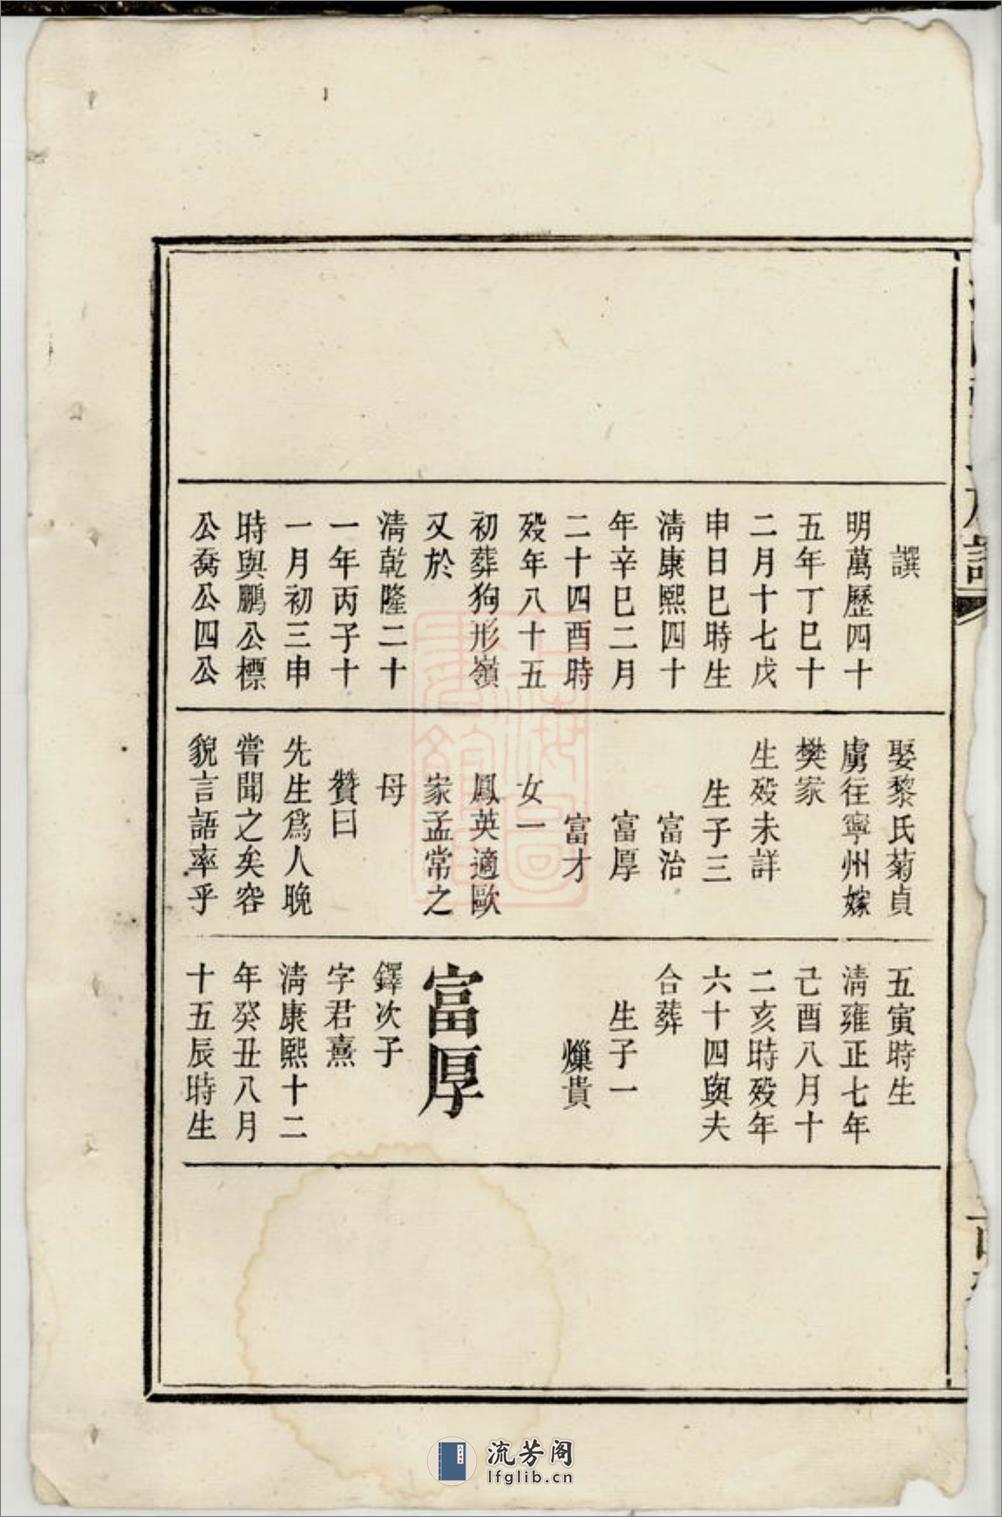 譔
明萬歷四十
五年丁巳十
二月十七戊
申日巳時生
淸康熙四十
年辛巳二月
二十四酉時
歿年八十五
初葬狗形嶺
又於
淸乾隆二十
一年丙子十
一月初三申
時與鵬公標
公喬公四公
娶黎氏菊貞
虜往寧州嫁
樊家
生歿未詳
生子三
富治
富厚
富才
女一
鳳英適歐
家孟常之
母
贊曰
先生爲人晚
嘗聞之矣容
貌言語率乎
五寅時生
淸雍正七年
己酉八月十
二亥時歿年
六十四與夫
合葬
生子一
爗貴
富厚
鐸次子
字君熹
淸康熙十二
年癸丑八月
十五辰時生
流芳阁
lfglib.cn